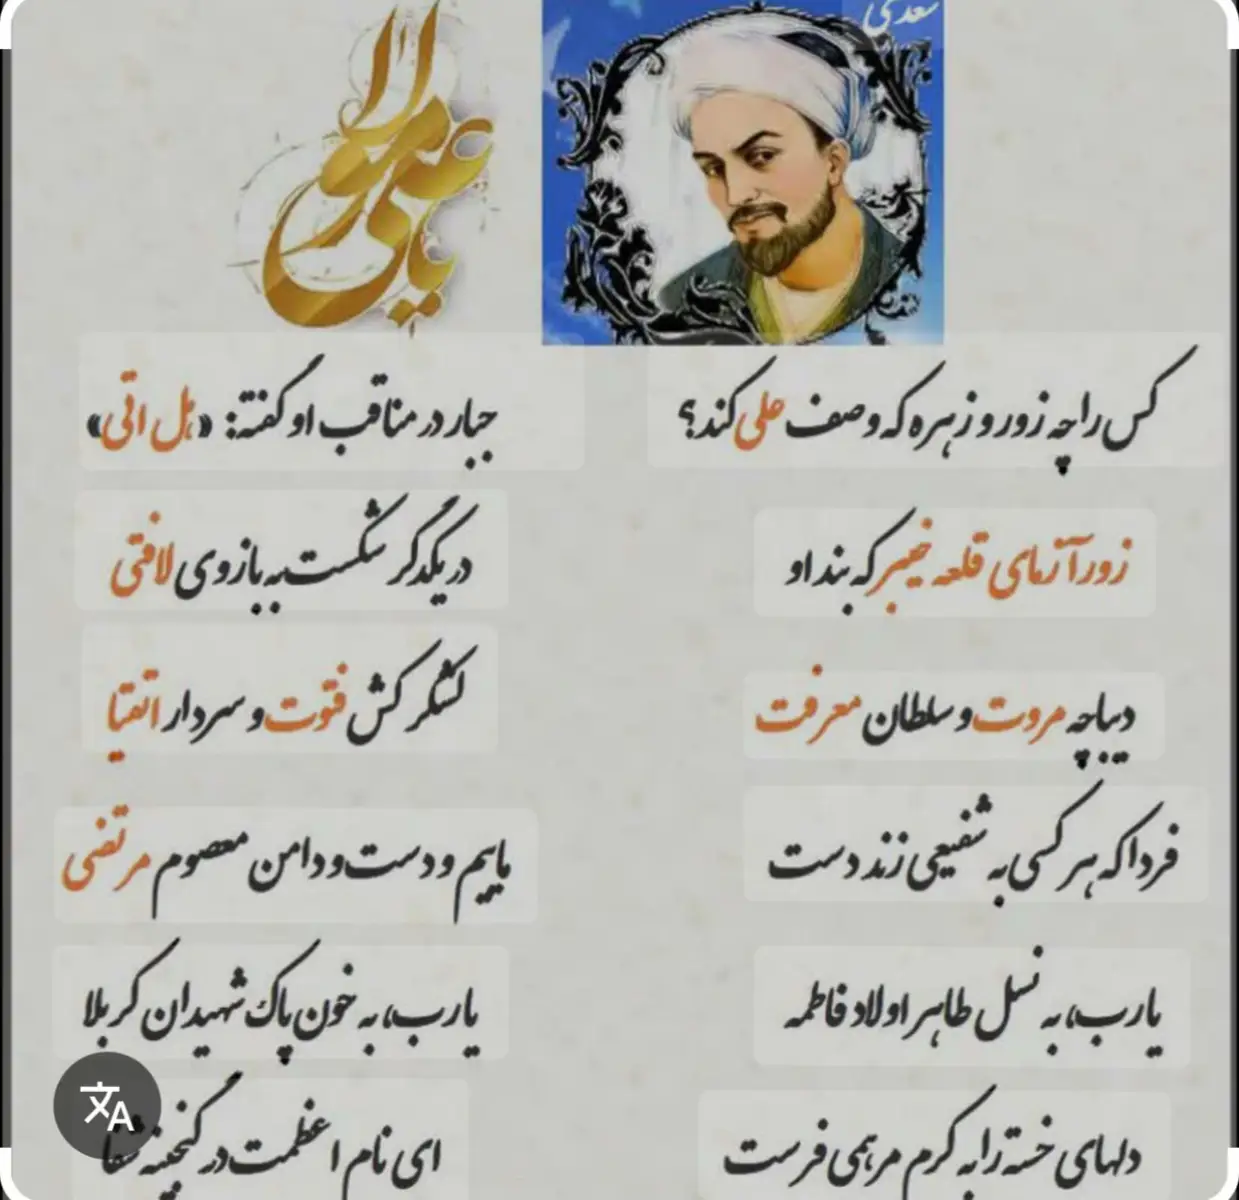 یا علی مولا
سعدی
کس را چه زور و زهره که وصف علی کند؟
جبار در مناقب او گفته: «هل اتی»
زورآزمای قلعه خیبر که بند او
در یکدگر شکست به بازوی لافتی
دیباچه مروت و سلطان معرفت
لشکر کش فتوت و سردار اتقیا
فردا که هر کسی به شفیعی زند دست
ماییم و دست و دامن معصوم مرتضی
یارب، به نسل طاهر اولاد فاطمه
یارب، به خون پاک شهیدان کربلا
دلهای خسته را به کرم مرهمی فرست
ای نام اعظمت در گنجینه شفا